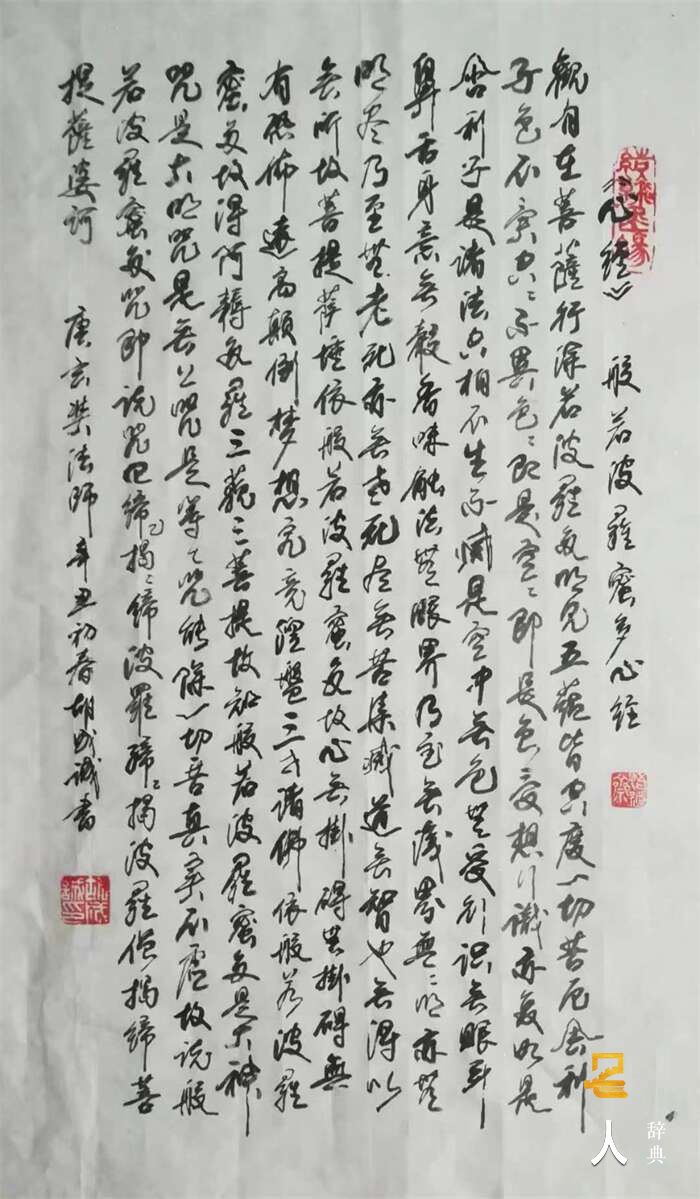 《心經》 般若波羅蜜多心經
觀自在菩薩行深若波羅多明见五蘊皆空度一切苦厄舍利
子色不空〻不異色〻即是空〻即是色受想行識亦复如是
舍利子是諸法空相不生不滅是空中無色無受行识無眼耳
鼻舌身意無聲香味触法無眼界乃至無識界無〻明亦無
明盡乃至無老死亦無老死盡無苦集滅道無智也無得以
無所故菩提萨埵依般若波羅蜜多故心無掛碍無掛碍無
有恐怖遠离颠倒梦想究竟涅盤三世诸佛依般若波羅
蜜多故得阿耨多羅三藐三菩提故知般若波羅蜜多是大神
咒是大明咒是無上咒是等〻咒能除一切苦真实不虚故说般
若波羅蜜多咒即说咒曰缔〻揭〻缔波羅缔〻揭波羅僧揭缔菩
提薩婆訶 唐玄奘法師 辛丑初春胡成诚書
名人
辞典